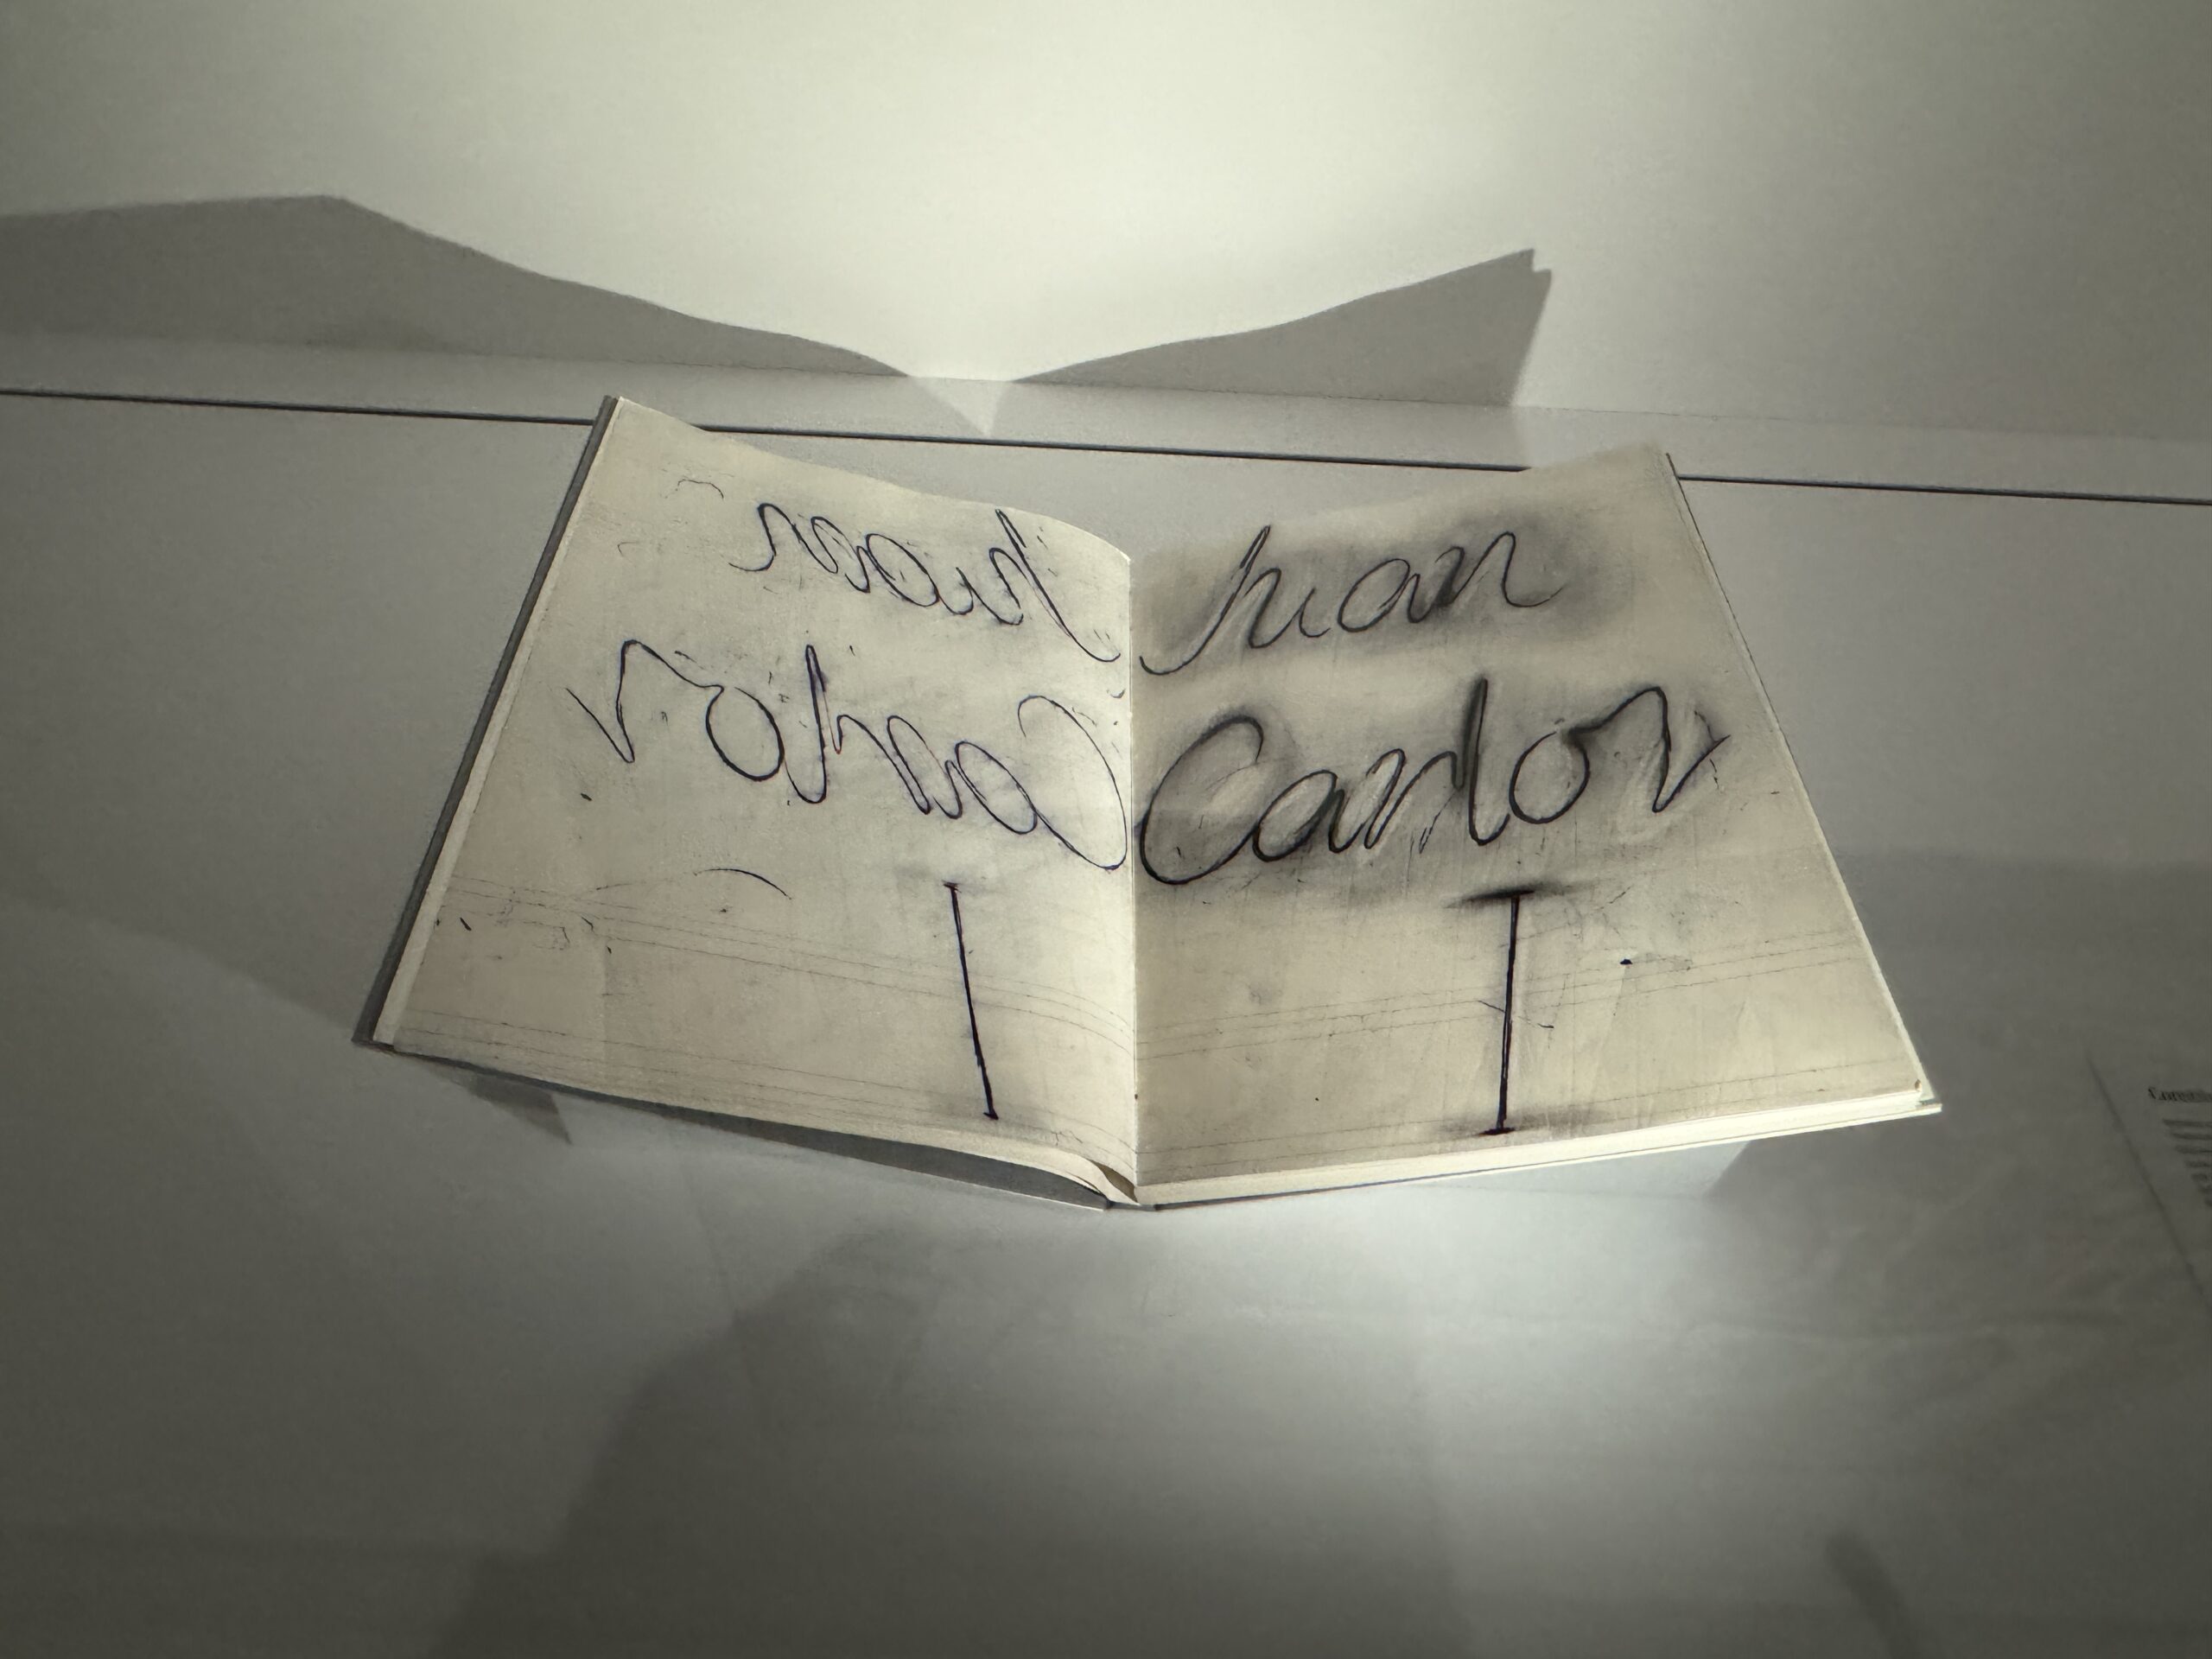 Juan
Carlos
I
Juan
Carlos
I